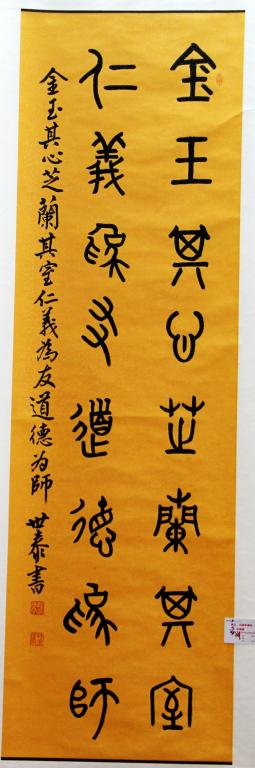 金玉其心芝蘭其室
仁義為友道德為師
金玉其心芝蘭其室仁義為友道德為師 世泰書